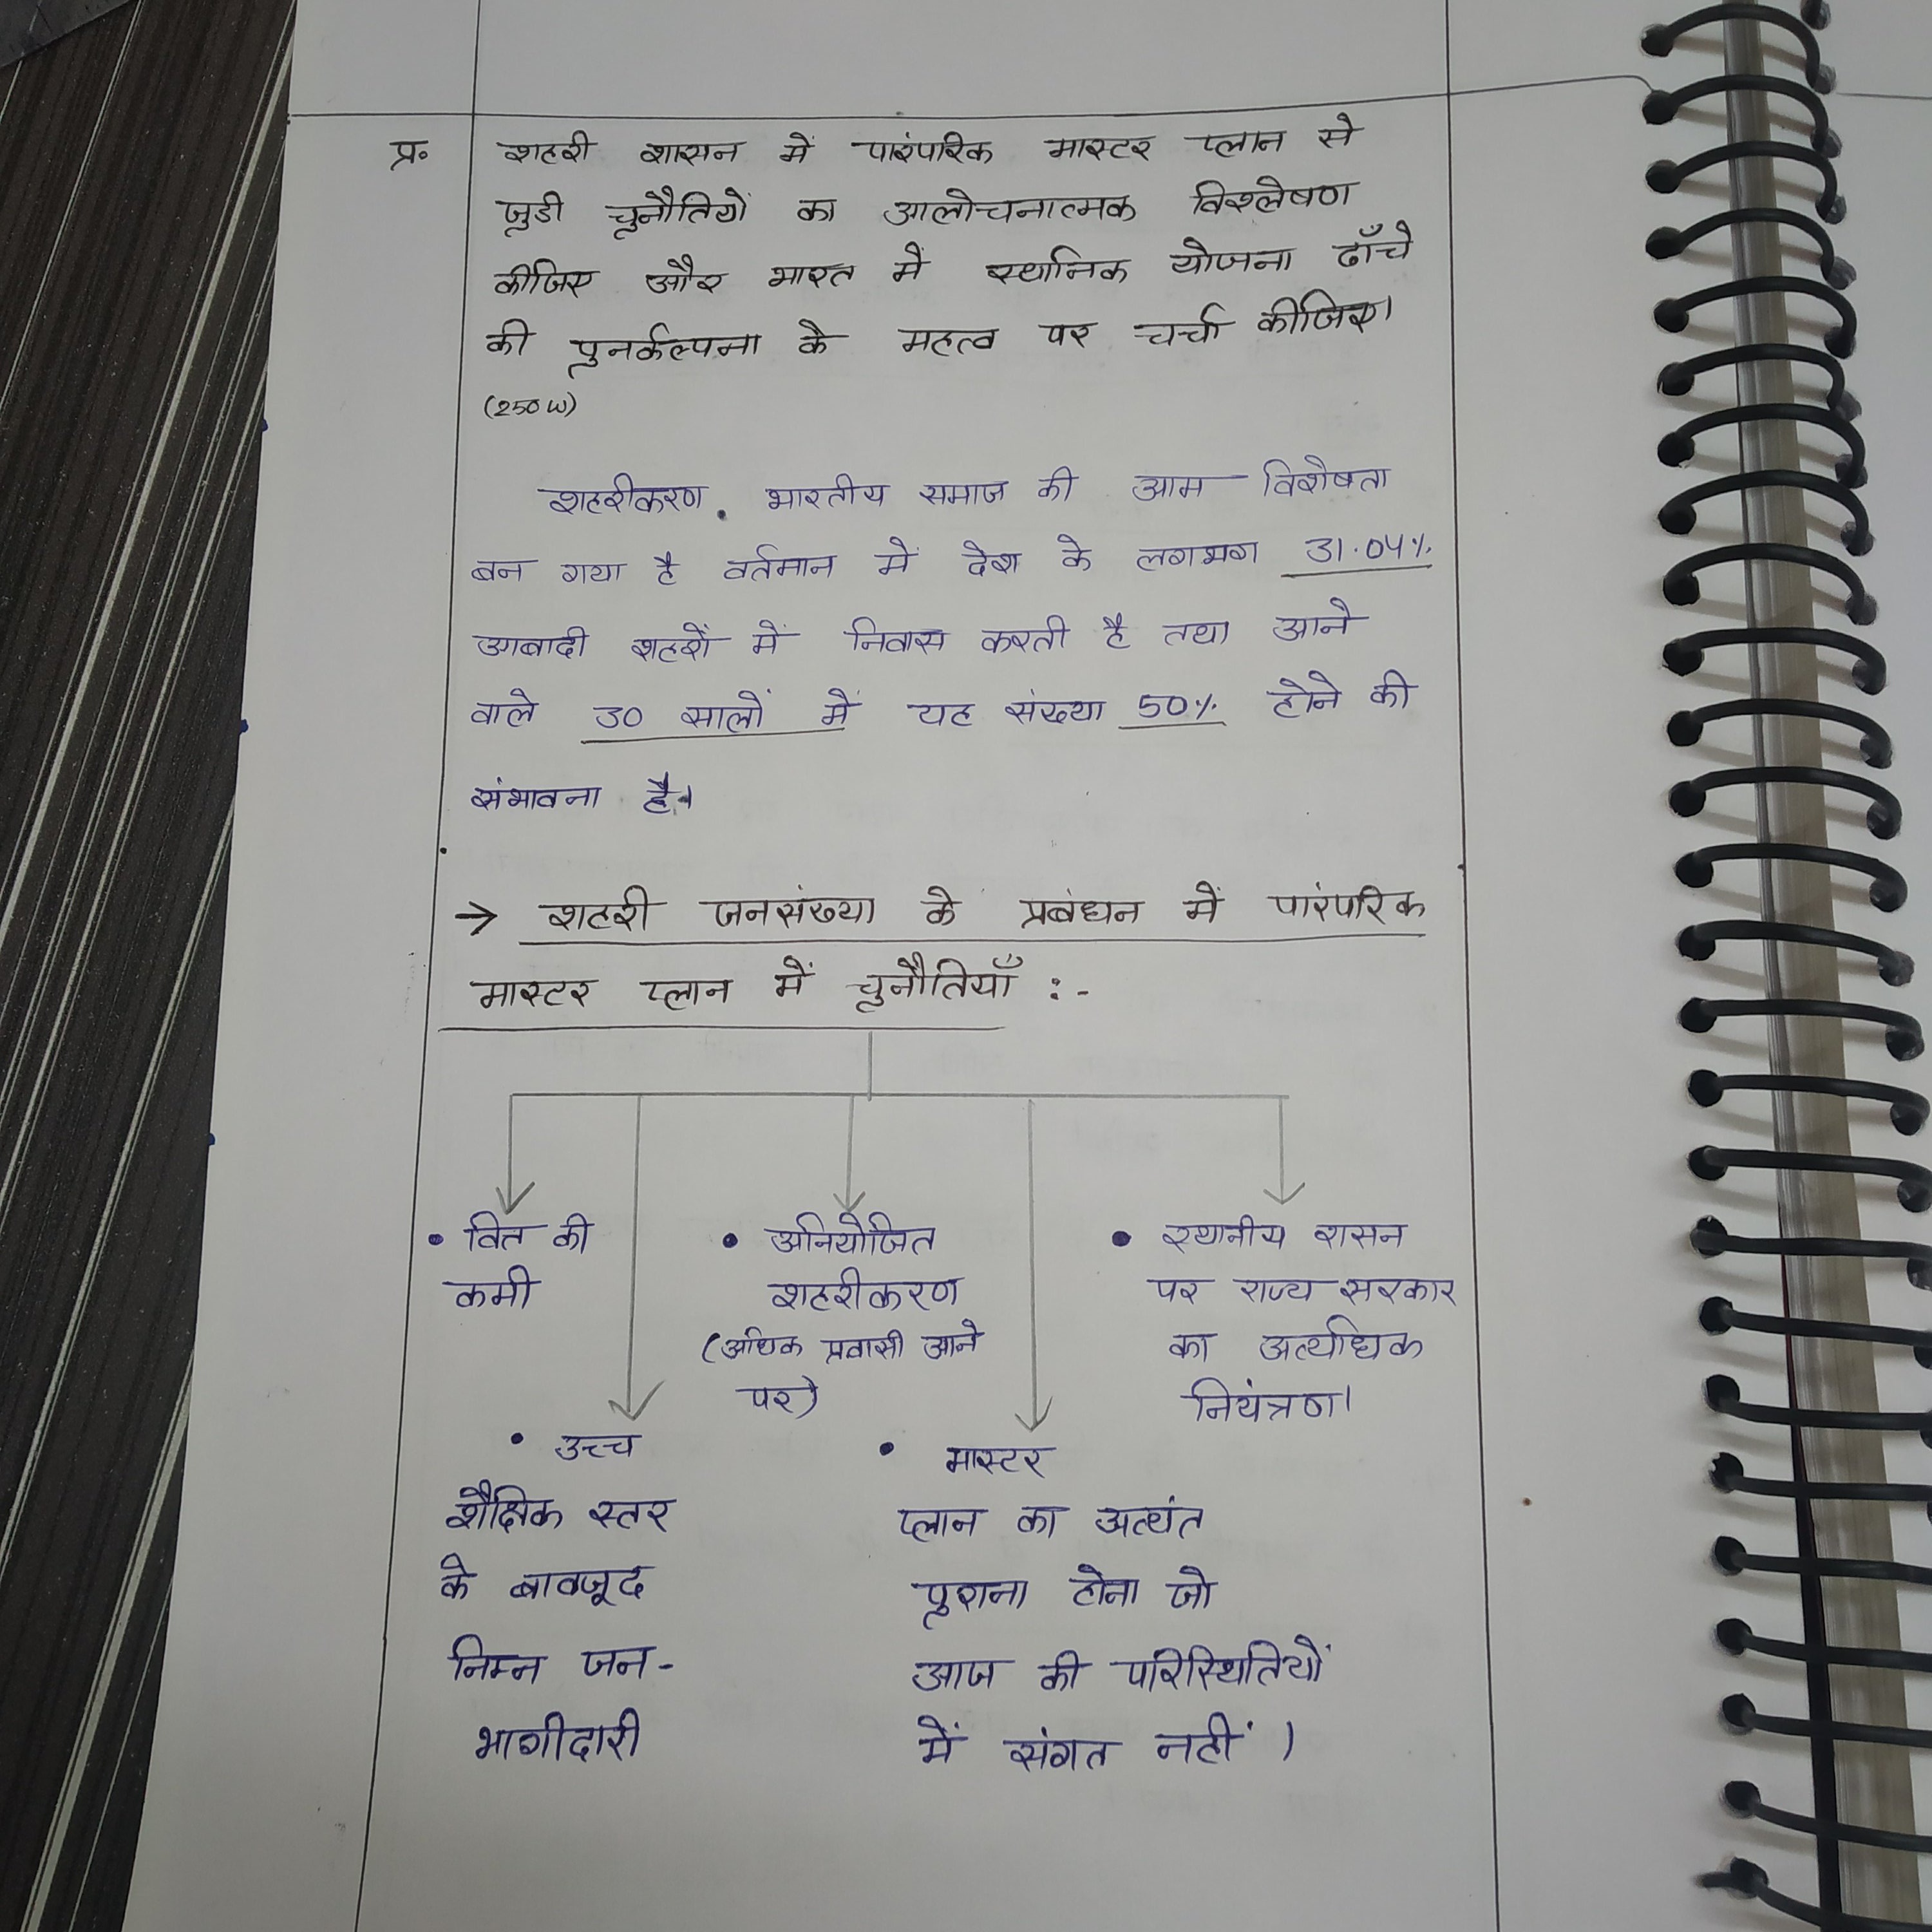 प्र॰ शहरी शासन में पारंपरिक मास्टर प्लान से
जुडी चुनौतियों का आलोचनात्मक विश्लेषण
कीजिए और भारत में स्थानिक योजना ढाँचे
की पुनर्कल्पना के महत्व पर चर्चा कीजिए।
(250 W)
शहरीकरण, भारतीय समाज की आम विशेषता
बन गया है वर्तमान में देश के लगभग 31.04%
आबादी शहरों में निवास करती है तथा आने
वाले 30 सालों में यह संख्या 50% होने की
संभावना है।
→ शहरी जनसंख्या के प्रबंधन में पारंपरिक
मास्टर प्लान में चुनौतियाँ :-
• वित की
कमी
• अनियोजित
शहरीकरण
(अधिक प्रवासी आने
पर)
• स्थानीय शासन
पर राज्य सरकार
का अत्यधिक
नियंत्रण।
• उच्च
शैक्षिक स्तर
के बावजूद
निम्न जन-
भागीदारी
• मास्टर
प्लान का अत्यंत
पुराना होना जो
आज की परिस्थितियों
में संगत नहीं।